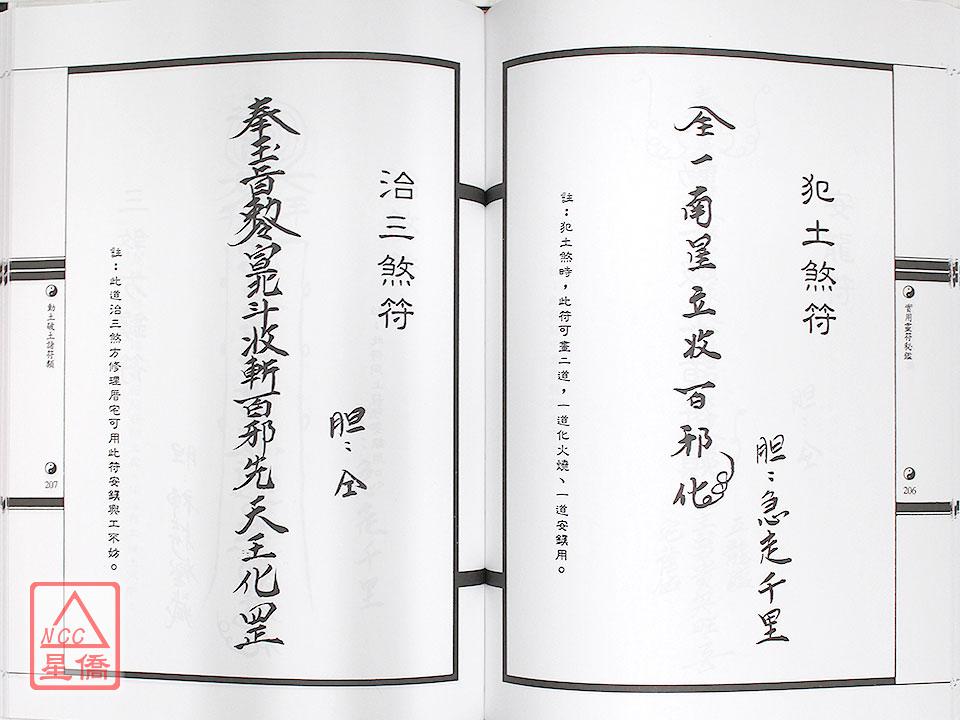 犯土煞符
仝一南罡立收百邪化
胆：急走千里
註：犯土煞時，此符可畫二道，一道化火燒、一道安鎮用。
實用靈符秘鑑
206
治三煞符
胆：仝
奉玉旨敕令
北斗收斬百邪先天王化罡
註：此道治三煞方修理厝宅可用此符安鎮興工不妨。
動土破土諸符類
207
NCC
星僑